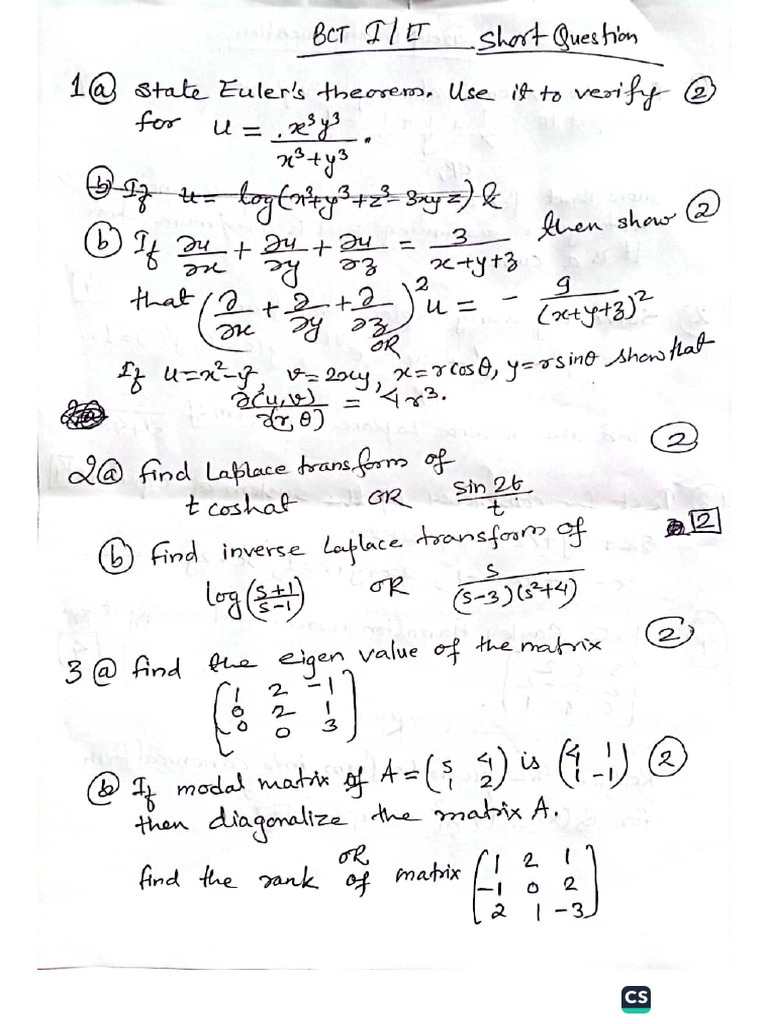 BCT I/II Short Question
1 (a) State Euler's theorem. Use it to verify (2)
for u = x³y³ / x³+y³ .
(b) If u = log(x³+y³+z³-3xyz) &
(b) If ∂u/∂x + ∂u/∂y + ∂u/∂z = 3 / x+y+z then show (2)
that (∂/∂x + ∂/∂y + ∂/∂z)² u = - 9 / (x+y+z)²
OR
If u=x²-y², v=2xy, x=rcosθ, y=rsinθ show that
∂(u,v) / ∂(r,θ) = 4r³.
2 (a) find Laplace transform of (2)
t coshat OR sin 2t / t
(b) Find inverse Laplace transform of 2
log(s+1 / s-1) OR s / (s-3)(s²+4)
3 (a) find the eigen value of the matrix (2)
1 2 -1
0 2 1
0 0 3
(b) If modal matrix of A = (5 4 / 1 2) is (4 1 / 1 -1) (2)
then diagonalize the matrix A.
OR
find the rank of matrix
1 2 1
-1 0 2
2 1 -3
CS